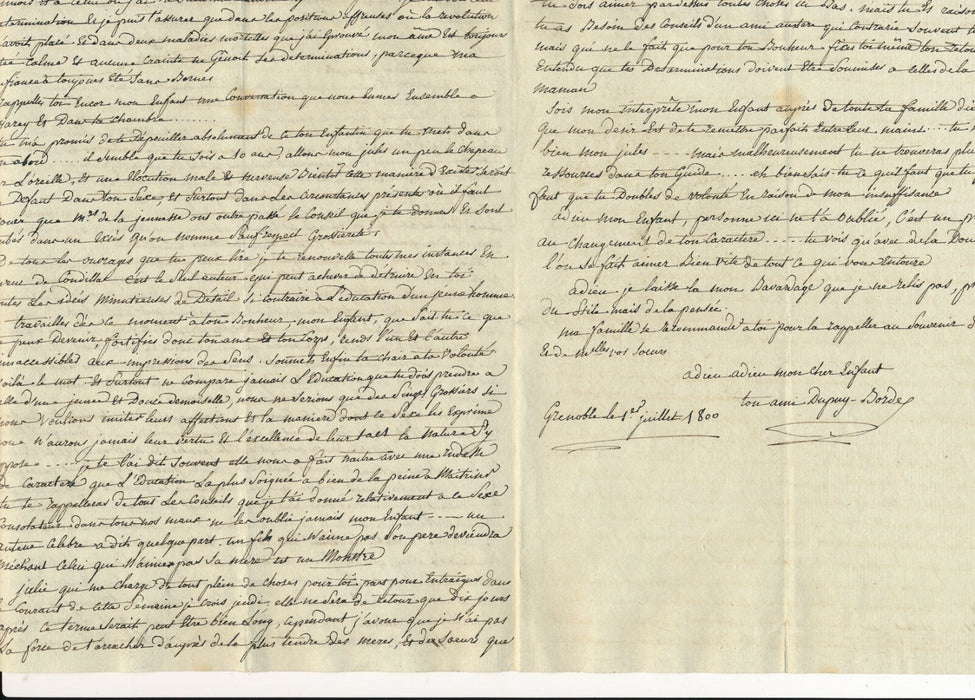 termination Et je puis t'assurer que dans les positions affreuses ou la revolution
m'avoit placé Et dans deux maladies mortelles que j'ai Eprouvé mon ame Est toujours
calme Et aucune Crainte ne Genoit ses determinations, parceque ma
confiance à toujours Eté Sans Bornes
rappelles toi Encor mon Enfant une Conversation que nous Eumes Ensemble a
Et Dans ta chambre
tu m'a promis de te Dépouiller absolument de ce ton Enfantin que tu mets dans
il semble que tu sois a 10 ans) allons mon jules un peu le chapeau
sur L'oreille, Et une Elocution male Et nerveuse Bientôt Cette maniere d'Exister, seroit
un Defaut Dans ton Sexe, Et Surtout dans Les Circonstances présentes où il faut
avouer que Mrs de la jeunesse ont outre passé le Conseil que je te donne Et Sont
tombés dans un Excès qu'on nomme Sauf respect Grossiereté;
De tous les ouvrages que tu peux lire je te renouvelle toutes mes instances En
faveur de Condillac c'est le Seul auteur qui peut achever de detruire En toi
toutes Les idées Minutieuses de Détail si contraire a L'éducation d'un jeune homme
travailles dès ce moment à ton Bonheur, mon Enfant, que Sait tu ce que
tu peux Devenir, fortifies donc ton ame Et ton Corps, rends l'un Et l'autre
inaccessibles aux impressions des Sens. Soumets Enfin ta chair à ta Volonté
Voilà le mot. Et Surtout ne Compare jamais L'Education que tu dois prendre a
celle d'une jeune Et Douce demoiselle, nous ne Serions que des Singes Grossiers si
nous Voulions imiter leurs affections Et la maniere dont ce Sexe les Exprime
nous N'aurons jamais leur vertu Et l'Excellence de leur tact la Nature S'y
oppose je te l'ai dit Souvent elle nous a fait naitre avec une rudesse
De Caractere que L'Education La plus Soignée a bien de la peine a Maitriser
tu te rappelleras de tous Les Conseils que je t'ai donné relativement a ce Sexe
Consolateur dans tous nos maux ne les oublie jamais mon Enfant ---- un
auteur Celebre a dit quelque part un fils qui N'aime pas Son pere deviendra
Méchant Celui qui N'aime pas Sa mere est un Monstre
julie qui me Charge de tout plein de choses pour toi part pour Entraigues dans
le Courant de Cette Semaine je crois jeudi, elle ne Sera de retour que Dix jours
après Ce terme Serait peut Etre bien Long, Cependant j'avoue que je N'ai pas
La force de t'arracher d'auprès de la plus tendre des meres, Et des Soeurs que
tu dois aimer par dessus toutes choses ici Bas. mais tu Es raisonnable
tu as Besoin Des Conseils d'un ami austere qui Contrarie Souvent
mais qui ne le fait que pour ton Bonheur fixes toi même ton retour
Entendu que tes Determinations doivent Etre Soumises a Celles de la
maman
Sois mon interprète mon Enfant auprès de toute ta famille
que mon desir Est de te remettre parfait Entre leurs mains --- tu
bien mon jules ---- mais malheureusement tu ne trouveras plus
ressources dans ton Guide ---- eh bien Sais tu ce qu'il faut que tu
faut que tu Doubles de volonté En raison de mon insuffisance
adieu mon Enfant, personne ici ne t'a oublié, C'est un
au Changement de ton Caractere ---- tu vois qu'avec de la Douceur
l'on Se fait aimer Bien vite de tout ce qui vous Entoure
adieu. je laisse la mon Bavardage que je ne relis pas,
du Stile mais de la pensée.
ma famille te recommande a toi pour la rappeller au Souvenir
Et de Melles vos Soeurs
adieu adieu mon Cher Enfant
ton ami Dupuy-Bordes
Grenoble le 1er juillet 1800